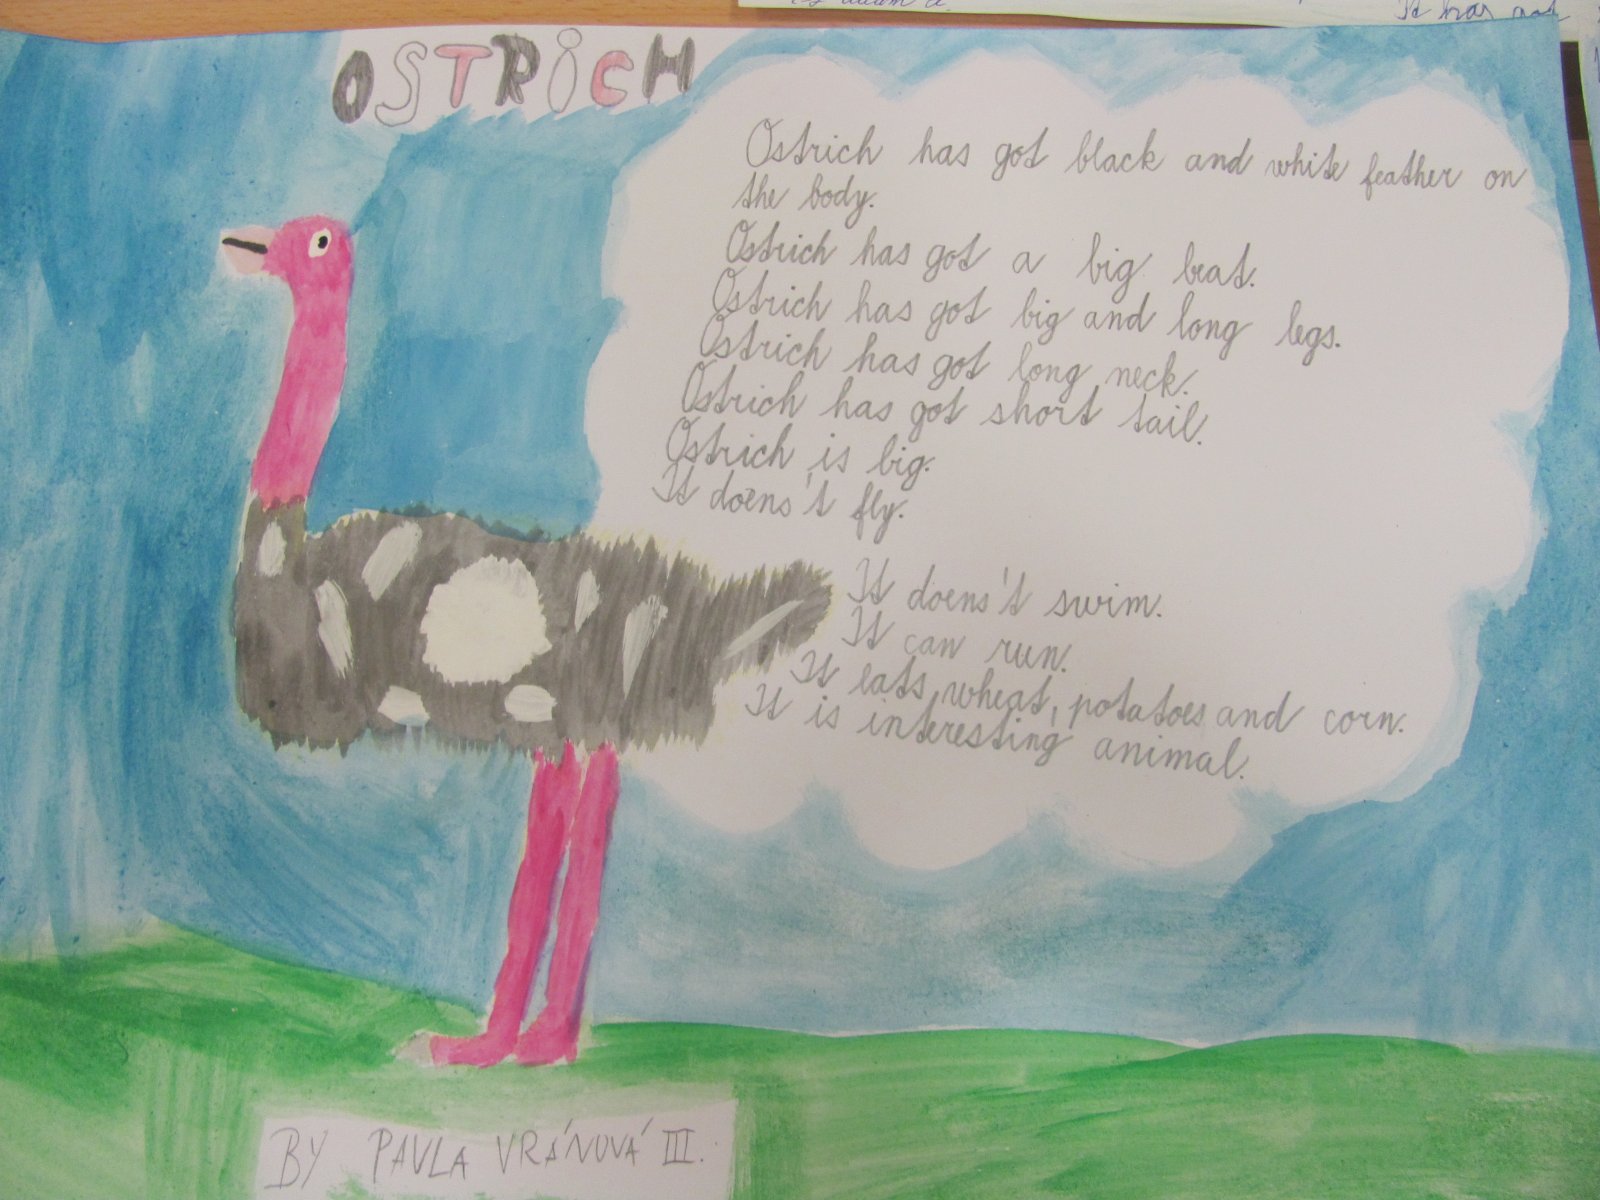 OSTRICH
Ostrich has got black and white feather on
the body.
Ostrich has got a big beat.
Ostrich has got big and long legs.
Ostrich has got long neck.
Ostrich has got short tail.
Ostrich is big.
It doens't fly.
It doens't swim.
It can run.
It eats wheat, potatoes and corn.
It is interesting animal.
BY PAVLA VRÁNOVÁ III.